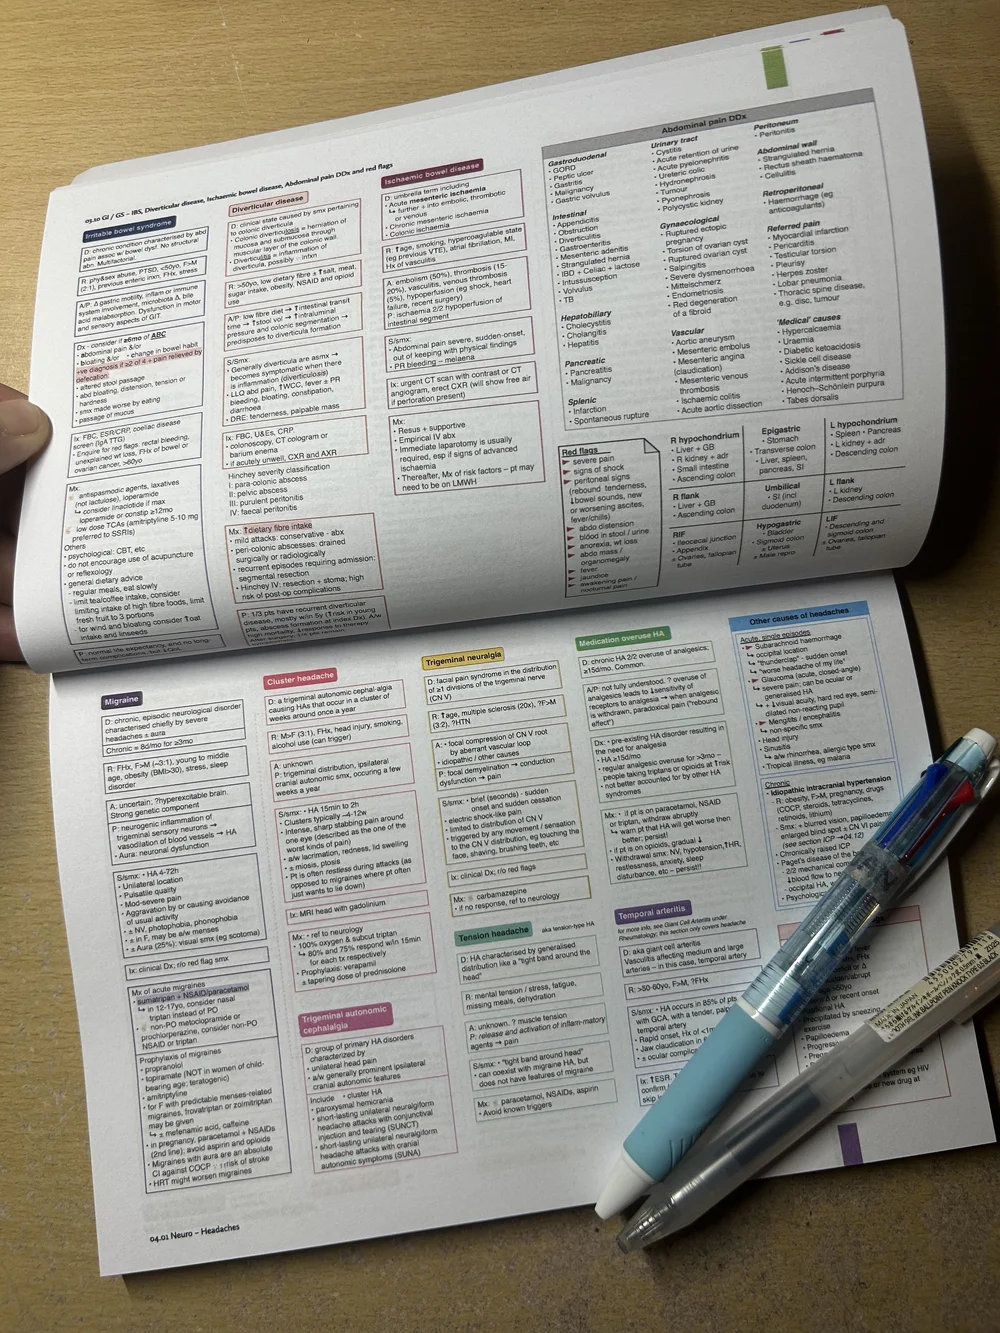 03.10 GI / GS – IBS, Diverticular disease, Ischaemic bowel disease, Abdominal pain DDx and red flags
Irritable bowel syndrome
D: chronic condition characterised by abd
pain assoc w/ bowel dysf. No structural
abn. Multifactorial.
R: phy&sex abuse, PTSD, <50yo, F>M
(2:1), previous enteric inxn, FHx, stress
A/P: Δ gastric motility, inflam or immune
system involvement, microbiota Δ, bile
acid malabsorption. Dysfunction in motor
and sensory aspects of GIT.
Dx - consider if ≥6mo of ABC
• abdominal pain &/or
• bloating &/or • change in bowel habit
+ve diagnosis if ≥2 of 4 + pain relieved by
defecation:
• altered stool passage
• abd bloating, distension, tension or
hardness
• smx made worse by eating
• passage of mucus
Ix: FBC, ESR/CRP, coeliac disease
screen (IgA TTG)
• Enquire for red flags: rectal bleeding,
unexplained wt loss, FHx of bowel or
ovarian cancer, >60yo
Mx:
antispasmodic agents, laxatives
(not lactulose), loperamide
↳ consider linaclotide if max
loperamide or constip ≥12mo
low dose TCAs (amitriptyline 5-10 mg
preferred to SSRIs)
Others
• psychological: CBT, etc
• do not encourage use of acupuncture
or reflexology
• general dietary advice
- regular meals, eat slowly
- limit tea/coffee intake, consider
limiting intake of high fibre foods, limit
fresh fruit to 3 portions
- for wind and bloating consider ↑oat
intake and linseeds
P: normal life expectancy, and no long-
term complications, but ↓QoL
Diverticular disease
D: clinical state caused by smx pertaining
to colonic diverticula
• Colonic diverticulosis = herniation of
mucosa and submucosa through
muscular layer of the colonic wall.
• Diverticulitis = inflammation of
diverticula, possibly ∵ infxn
R: >50yo, low dietary fibre ± ↑salt, meat,
sugar intake, obesity, NSAID and opioid
use
A/P: low fibre diet → ↑intestinal transit
time → ↑stool vol → ↑intraluminal
pressure and colonic segmentation →
predisposes to diverticula formation
S/Smx:
• Generally diverticula are asmx →
becomes symptomatic when there
is inflammation (diverticulosis)
• LLQ abd pain, ↑WCC, fever ± PR
bleeding, bloating, constipation,
diarrhoea
• DRE: tenderness, palpable mass
Ix: FBC, U&Es, CRP,
• colonoscopy, CT cologram or
barium enema
• if acutely unwell, CXR and AXR
Hinchey severity classification
I: para-colonic abscess
II: pelvic abscess
III: purulent peritonitis
IV: faecal peritonitis
Mx: ↑dietary fibre intake
• mild attacks: conservative - abx
• peri-colonic abscesses: drained
surgically or radiologically
• recurrent episodes requiring admission:
segmental resection
• Hinchey IV: resection + stoma; high
risk of post-op complications
P: 1/3 pts have recurrent diverticular
disease, mostly w/in 5y (↑risk in young
pts, abscess formation at index Dx). A/w
high mortality, ↓response to therapy
Ischaemic bowel disease
D: umbrella term including
• Acute mesenteric ischaemia
↳ further ÷ into embolic, thrombotic
or venous
• Chronic mesenteric ischaemia
• Colonic ischaemia
R: ↑age, smoking, hypercoagulable state
(eg previous VTE), atrial fibrillation, MI,
Hx of vasculitis
A: embolism (50%), thrombosis (15-
20%), vasculitis, venous thrombosis
(5%), hypoperfusion (eg shock, heart
failure, recent surgery)
P: ischaemia 2/2 hypoperfusion of
intestinal segment
S/smx:
• Abdominal pain severe, sudden-onset,
out of keeping with physical findings
• PR bleeding – melaena
Ix: urgent CT scan with contrast or CT
angiogram, erect CXR (will show free air
if perforation present)
Mx:
• Resus + supportive
• Empirical IV abx
• Immediate laparotomy is usually
required, esp if signs of advanced
ischaemia
• Thereafter, Mx of risk factors – pt may
need to be on LMWH
Abdominal pain DDx
Gastroduodenal
• GORD
• Peptic ulcer
• Gastritis
• Malignancy
• Gastric volvulus
Intestinal
• Appendicitis
• Obstruction
• Diverticulitis
• Gastroenteritis
• Mesenteric adenitis
• Strangulated hernia
• IBD + Celiac + lactose
• Intussusception
• Volvulus
• TB
Hepatobiliary
• Cholecystitis
• Cholangitis
• Hepatitis
Pancreatic
• Pancreatitis
• Malignancy
Splenic
• Infarction
• Spontaneous rupture
Urinary tract
• Cystitis
• Acute retention of urine
• Acute pyelonephritis
• Ureteric colic
• Hydronephrosis
• Tumour
• Pyonephrosis
• Polycystic kidney
Gynaecological
• Ruptured ectopic
pregnancy
• Torsion of ovarian cyst
• Ruptured ovarian cyst
• Salpingitis
• Severe dysmenorrhoea
• Mittelschmerz
• Endometriosis
• Red degeneration
of a fibroid
Vascular
• Aortic aneurysm
• Mesenteric embolus
• Mesenteric angina
(claudication)
• Mesenteric venous
thrombosis
• Ischaemic colitis
• Acute aortic dissection
Peritoneum
• Peritonitis
Abdominal wall
• Strangulated hernia
• Rectus sheath haematoma
• Cellulitis
Retroperitoneal
• Haemorrhage (eg
anticoagulants)
Referred pain
• Myocardial infarction
• Pericarditis
• Testicular torsion
• Pleurisy
• Herpes zoster
• Lobar pneumonia
• Thoracic spine disease,
e.g. disc, tumour
'Medical' causes
• Hypercalcaemia
• Uraemia
• Diabetic ketoacidosis
• Sickle cell disease
• Addison's disease
• Acute intermittent porphyria
• Henoch–Schönlein purpura
• Tabes dorsalis
Red flags
severe pain
signs of shock
peritoneal signs
(rebound tenderness,
↓bowel sounds, new
or worsening ascites,
fever/chills)
abdo distension
blood in stool / urine
anorexia, wt loss
abdo mass /
organomegaly
fever
jaundice
awakening pain /
nocturnal pain
R hypochondrium
• Liver + GB
• R kidney + adr
• Small intestine
• Ascending colon
Epigastric
• Stomach
• Transverse colon
• Liver, spleen,
pancreas, SI
L hypochondrium
• Spleen • Pancreas
• L kidney + adr
• Descending colon
R flank
• Liver + GB
• Ascending colon
Umbilical
• SI (incl
duodenum)
L flank
• L kidney
• Descending colon
RIF
• Ileocecal junction
• Appendix
± Ovaries, fallopian
tube
Hypogastric
• Bladder
• Sigmoid colon
± Uterus
± Male repro
LIF
• Descending and
sigmoid colon
± Ovaries, fallopian
tube
Migraine
D: chronic, episodic neurological disorder
characterised chiefly by severe
headaches ± aura
Chronic = 8d/mo for ≥3mo
R: FHx, F>M (~3:1), young to middle
age, obesity (BMI>30), stress, sleep
disorder
A: uncertain; ?hyperexcitable brain.
Strong genetic component
P: neurogenic inflammation of
trigeminal sensory neurons →
vasodilation of blood vessels → HA
• Aura: neuronal dysfunction
S/smx: • HA 4-72h
• Unilateral location
• Pulsatile quality
• Mod-severe pain
• Aggravation by or causing avoidance
of usual activity
• ± NV, photophobia, phonophobia
• ± in F, may be a/w menses
• ± Aura (25%): visual smx (eg scotoma)
Ix: clinical Dx; r/o red flag smx
Mx of acute migraines
• sumatripan + NSAID/paracetamol
↳ in 12-17yo, consider nasal
triptan instead of PO
non-PO metoclopramide or
prochlorperazine, consider non-PO
NSAID or triptan
Prophylaxis of migraines
• propranolol
• topiramate (NOT in women of child-
bearing age; teratogenic)
• amitriptyline
• for F with predictable menses-related
migraines, frovatriptan or zolmitriptan
may be given
↳ ± mefenamic acid, caffeine
• in pregnancy, paracetamol + NSAIDs
(2nd line); avoid aspirin and opioids
• Migraines with aura are an absolute
CI against COCP ∵ ↑↑risk of stroke
• HRT might worsen migraines
Cluster headache
D: a trigeminal autonomic cephal-algia
causing HAs that occur in a cluster of
weeks around once a year
R: M>F (3:1), FHx, head injury, smoking,
alcohol use (can trigger)
A: unknown
P: trigeminal distribution, ipsilateral
cranial autonomic smx, occuring a few
weeks a year
S/smx: • HA 15min to 2h
• Clusters typically ~4-12w
• Intense, sharp stabbing pain around
one eye (described as one of the
worst kinds of pain)
• a/w lacrimation, redness, lid swelling
± miosis, ptosis
• Pt is often restless during attacks (as
opposed to migraines where pt often
just wants to lie down)
Ix: MRI head with gadolinium
Mx: • ref to neurology
• 100% oxygen & subcut triptan
↳ 80% and 75% respond w/in 15min
for each tx respectively
• Prophylaxis: verapamil
± tapering dose of prednisolone
Trigeminal autonomic
cephalalgia
D: group of primary HA disorders
characterized by
• unilateral head pain
• a/w generally prominent ipsilateral
cranial autonomic features
Include • cluster HA
• paroxysmal hemicrania
• short-lasting unilateral neuralgiform
headache attacks with conjunctival
injection and tearing (SUNCT)
• short-lasting unilateral neuralgiform
headache attacks with cranial
autonomic symptoms (SUNA)
Trigeminal neuralgia
D: facial pain syndrome in the distribution
of ≥1 divisions of the trigeminal nerve
(CN V)
R: ↑age, multiple sclerosis (20x), ?F>M
(3:2), ?HTN
A: • focal compression of CN V root
by aberrant vascular loop
• idiopathic / other causes
P: focal demyelination → conduction
dysfunction → pain
S/smx: • brief (seconds) - sudden
onset and sudden cessation
• electric shock-like pain
• limited to distribution of CN V
• triggered by any movement / sensation
to the CN V distribution, eg touching the
face, shaving, brushing teeth, etc
Ix: clinical Dx; r/o red flags
Mx: carbamazepine
• if no response, ref to neurology
Tension headache aka tension-type HA
D: HA characterised by generalised
distribution like a "tight band around the
head"
R: mental tension / stress, fatigue,
missing meals, dehydration
A: unknown. ? muscle tension
P: release and activation of inflam-matory
agents → pain
S/smx: • "tight band around head"
• can coexist with migraine HA, but
does not have features of migraine
Mx: paracetamol, NSAIDs, aspirin
• Avoid known triggers
Medication overuse HA
D: chronic HA 2/2 overuse of analgesics;
≥15d/mo. Common.
A/P: not fully understood. ? overuse of
analgesics leads to ↓sensitivity of
receptors to analgesia → when analgesic
is withdrawn, paradoxical pain ("rebound
effect")
Dx: • pre-existing HA disorder resulting in
the need for analgesia
• HA ≥15d/mo
• regular analgesic overuse for >3mo –
people taking triptans or opioids at ↑risk
• not better accounted for by other HA
syndromes
Mx: • if pt is on paracetamol, NSAID
or triptan, withdraw abruptly
↳ warn pt that HA will get worse then
better; persist!
• if pt is on opioids, gradual ↓
• Withdrawal smx: NV, hypotension,↑HR,
restlessness, anxiety, sleep
disturbance, etc – persist!!
Temporal arteritis
for more info, see Giant Cell Arteritis under
Rheumatology; this section only covers headache
D: aka giant cell arteritis
Vasculitis affecting medium and large
arteries – in this case, temporal artery
R: >50-60yo, F>M, ?FHx
S/smx: • HA occurs in 85% of pts
with GCA, with a tender, palp
temporal artery
• Rapid onset, Hx of <1m
• Jaw claudication in
• ± ocular complic
Ix: ↑ESR, T
confirm
skip l
Other causes of headaches
Acute, single episodes
Subarachnoid haemorrhage
↳ occipital location
↳ "thunderclap" - sudden onset
↳ "worse headache of my life"
Glaucoma (acute, closed-angle)
↳ severe pain; can be ocular or
generalised HA
↳ + ↓visual acuity, hard red eye, semi-
dilated non-reacting pupil
Mengitits / encephalitis
↳ non-specific smx
• Head injury
• Sinusitis
↳ a/w rhinorrhea, allergic type smx
• Tropical illness, eg malaria
Chronic
• Idiopathic intracranial hypertension
- R: obesity, F>M, pregnancy, drugs
(COCP, steroids, tetracyclines,
retinoids, lithium)
- Smx: + blurred vision, papilloedema
enlarged blind spot ± CN VI pal
(see section ICP →04.12)
• Chronically raised ICP
• Paget's disease of the b
- 2/2 mechanical comp
↓blood flow to ne
- occipital HA,
• Psychologic
>50yo
Δ or recent onset
Precipitated by sneezing
exercise
Papilloedema
Progress
system eg HIV
or new drug at
MADE IN JAPAN
04.01 Neuro – Headaches